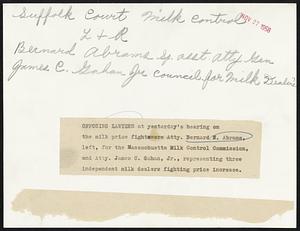 Suffolk Court Milk Control
NOV 27 1958
L & R
Bernard Abrams Sp. asst. Atty. Gen
James C. Gahan Jr council for Milk Dealers
OPPOSING LAWYERS at yesterday's hearing on
the milk price fight were Atty. Bernard M. Abrams,
left, for the Massachusetts Milk Control Commission,
and Atty. James C. Gahan, Jr., representing three
independent milk dealers fighting price increase.